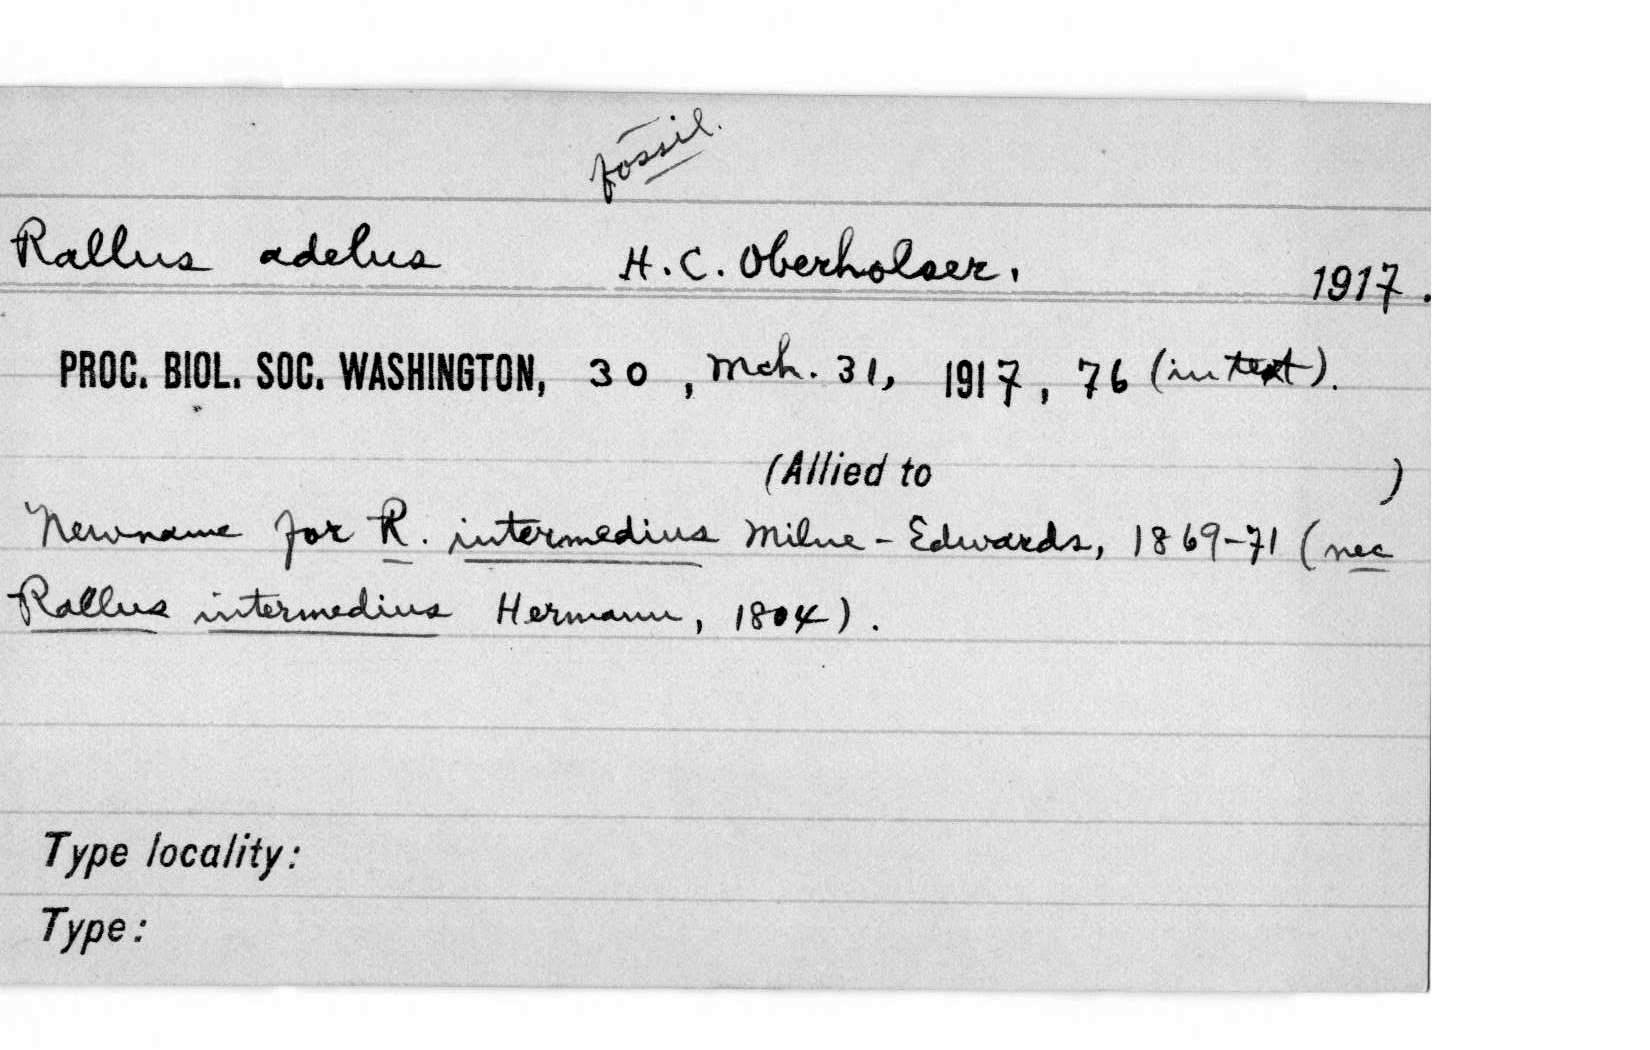 fossil.
Rallus adelus H. C. Oberholser, 1917.
PROC. BIOL. SOC. WASHINGTON, 30, Mch. 31, 1917, 76 (in text).
(Allied to )
New name for R. intermedius Milne-Edwards, 1869-71 (nec
Rallus intermedius Hermann, 1804).
Type locality:
Type: